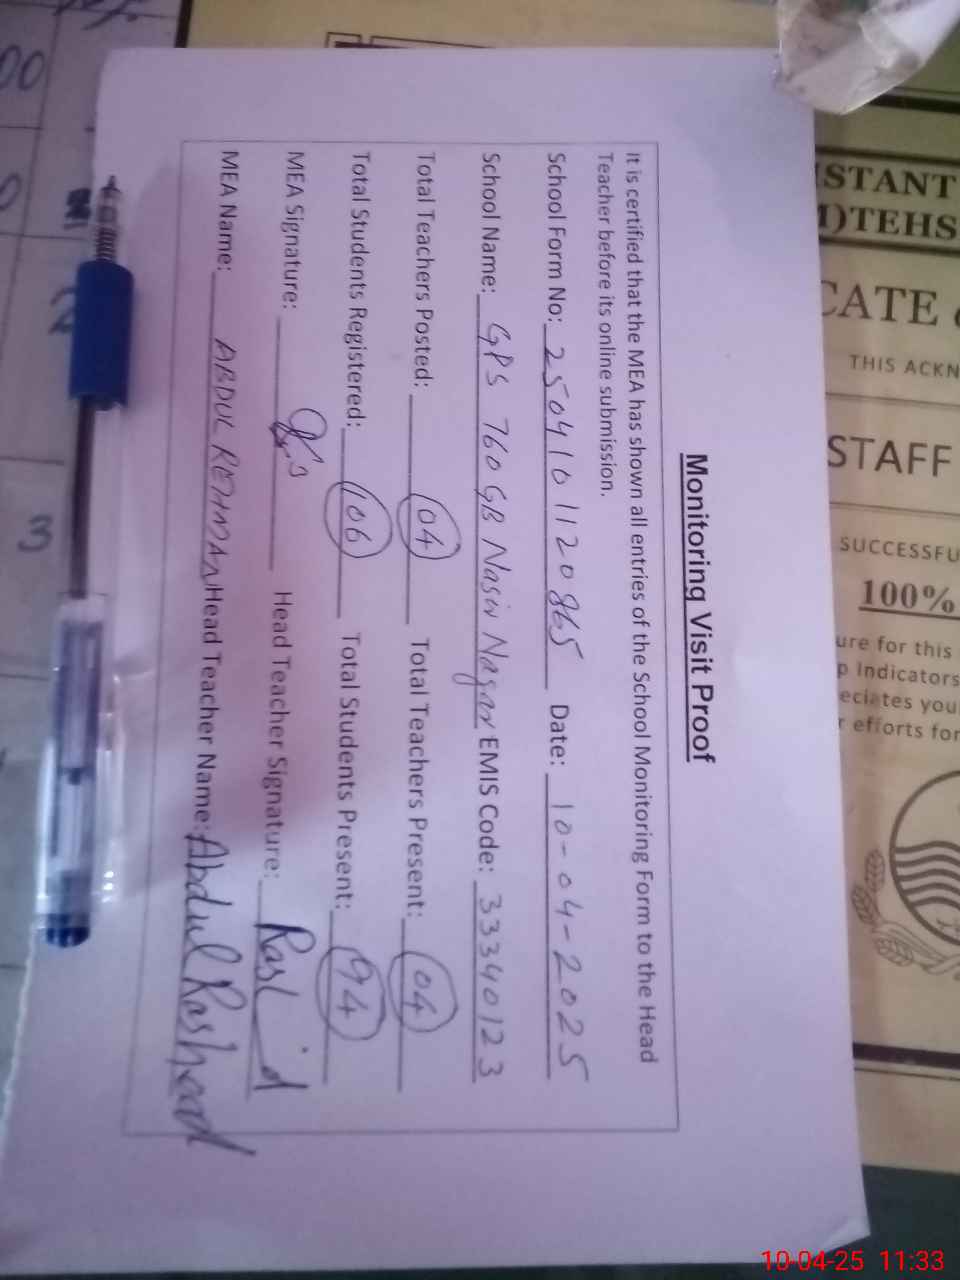 Monitoring Visit Proof
It is certified that the MEA has shown all entries of the School Monitoring Form to the Head
Teacher before its online submission.
School Form No: 250410 1120865 Date: 10-04-2025
School Name: GPS 760 GB Nasir Nagar EMIS Code: 33340123
Total Teachers Posted: 04 Total Teachers Present: 04
Total Students Registered: 106 Total Students Present: 94
MEA Signature: Head Teacher Signature: Rashid
MEA Name: ABDUL REHMAN Head Teacher Name: Abdul Rasheed
STANT
)TEHS
CATE
THIS ACKN
STAFF
SUCCESSFU
100%
ure for this
p Indicators
eciates you
r efforts for
00
0
2
3
10-04-25 11:33